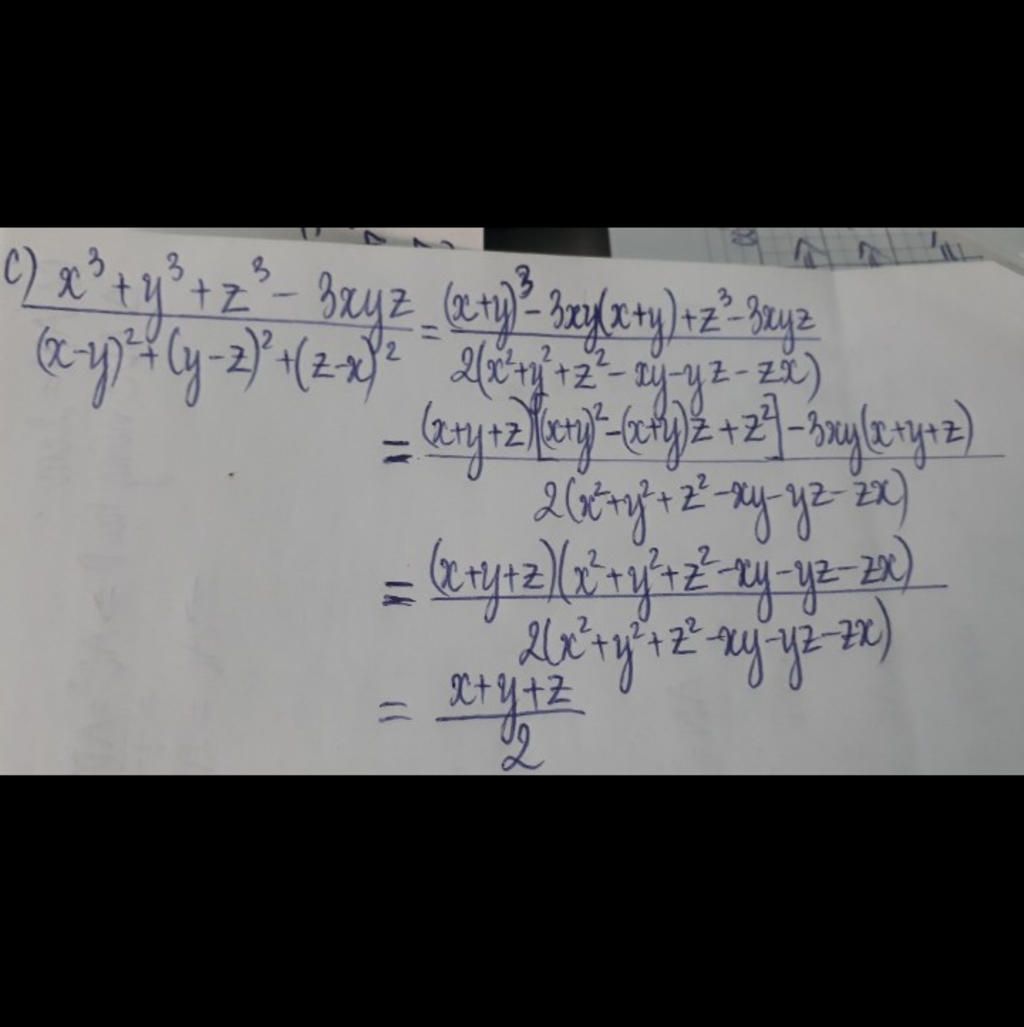 c) (x³ + y³ + z³ - 3xyz)/((x-y)² + (y-z)² + (z-x)²) = ((x+y)³ - 3xy(x+y) + z³ - 3xyz)/(2(x² + y² + z² - xy - yz - zx))
= ((x+y+z)[(x+y)² - (x+y)z + z²] - 3xy(x+y+z))/(2(x² + y² + z² - xy - yz - zx))
= ((x+y+z)(x² + y² + z² - xy - yz - zx))/(2(x² + y² + z² - xy - yz - zx))
= (x+y+z)/2